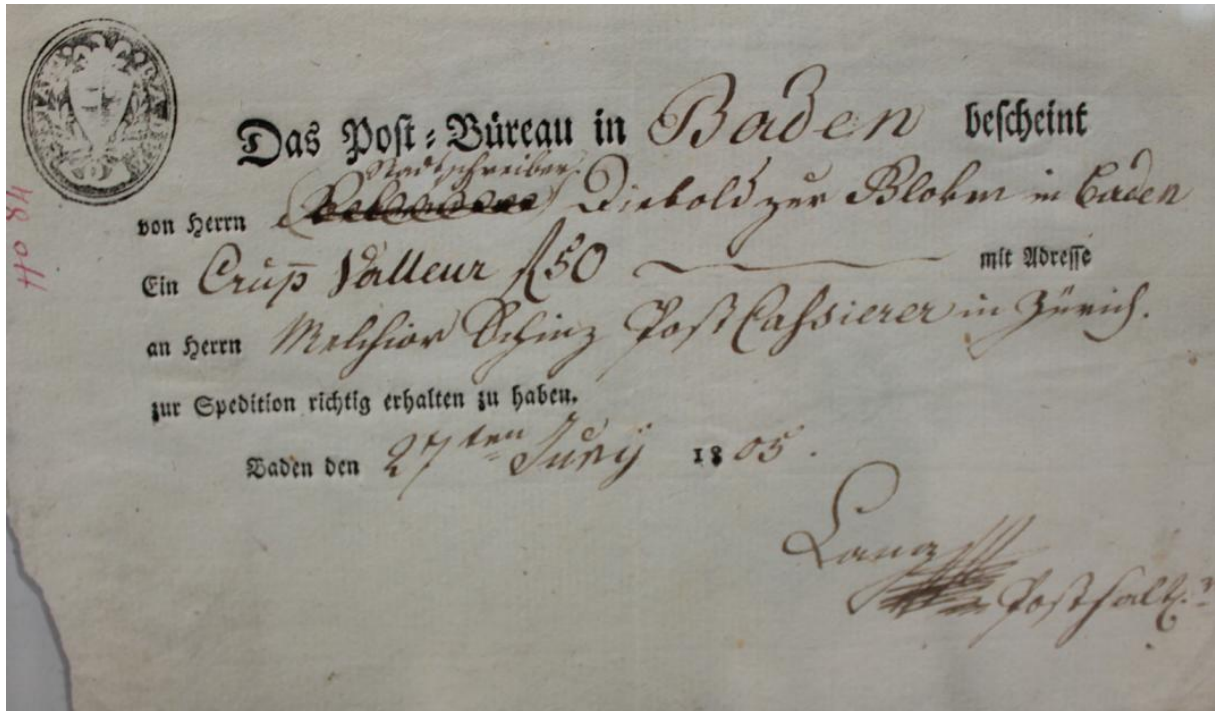 Das Post-Büreau in Baden bescheint
Stadtschreiber
von Herrn Diebold zur Blohm in Baden
Ein Crup Valleur f 50 mit Adresse
an Herrn Melchior Schinz Post Cassierer in Zürich.
zur Spedition richtig erhalten zu haben.
Baden den 27ten Juny 1805.
Posthalt.
No 84